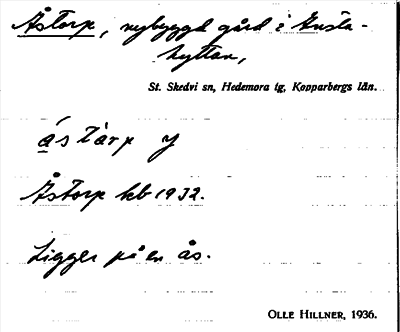 Åstorp, nybyggd gård i Gusta-
hyttan,
St. Skedvi sn, Hedemora tg, Kopparbergs län.
ás tàrp y
Åstorp kb 1932.
Ligger på en ås.
OLLE HILLNER, 1936.